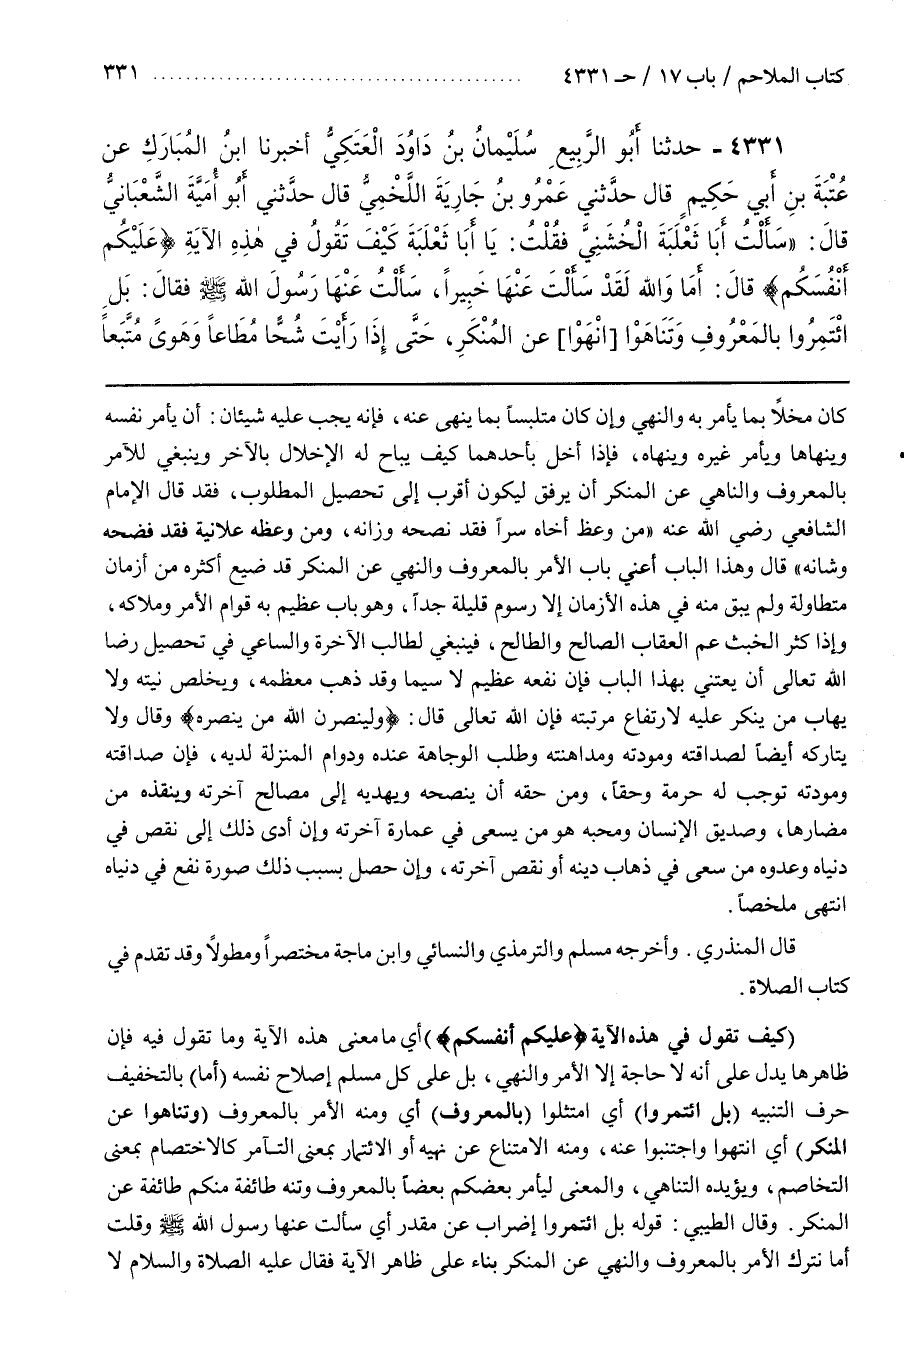 كتاب الملاحم / باب ١٧ / حـ ٤٣٣١ ............................................ ٣٣١
٤٣٣١ - حدثنا أَبُو الرَّبِيعِ سُلَيْمانُ بنُ دَاوُدَ الْعَتَكِيُّ أخبرنا ابنُ المُبَارَكِ عن
عُتْبَةَ بنِ أَبي حَكِيمٍ قال حدَّثني عَمْرُو بنُ جَارِيَةَ اللَّخْمِيُّ قال حدَّثني أَبُو أُمَيَّةَ الشَّعْبَانيُّ
قالَ: «سَأَلْتُ أبَا ثَعْلَبَةَ الْخُشَنِيَّ فقُلْتُ: يَا أبَا ثَعْلَبَةَ كَيْفَ تَقُولُ في هٰذِهِ الآيَةِ ﴿عَلَيْكُم
أَنْفُسَكُم﴾ قالَ: أمَا وَالله لَقَدْ سَأَلْتَ عَنْهَا خَبِيراً، سَأَلْتُ عَنْهَا رَسُولَ الله ﷺ فقالَ: بَلِ
ائْتَمِرُوا بالمَعْرُوفِ وَتَنَاهَوْا [انْهَوْا] عن المُنْكَرِ، حَتَّى إِذَا رَأَيْتَ شُحًّا مُطَاعاً وَهَوىً مُتَّبَعاً
كان مخلاًّ بما يأمر به والنهي وإن كان متلبساً بما ينهى عنه، فإنه يجب عليه شيئان: أن يأمر نفسه
وينهاها ويأمر غيره وينهاه، فإذا أخل بأحدهما كيف يباح له الإخلال بالآخر وينبغي للآمر
بالمعروف والناهي عن المنكر أن يرفق ليكون أقرب إلى تحصيل المطلوب، فقد قال الإمام
الشافعي رضي الله عنه «من وعظ أخاه سراً فقد نصحه وزانه، ومن وعظه علانية فقد فضحه
وشانه» قال وهذا الباب أعني باب الأمر بالمعروف والنهي عن المنكر قد ضيع أكثره من أزمان
متطاولة ولم يبق منه في هذه الأزمان إلا رسوم قليلة جداً، وهو باب عظيم به قوام الأمر وملاكه،
وإذا كثر الخبث عم العقاب الصالح والطالح، فينبغي لطالب الآخرة والساعي في تحصيل رضا
الله تعالى أن يعتني بهذا الباب فإن نفعه عظيم لا سيما وقد ذهب معظمه، ويخلص نيته ولا
يهاب من ينكر عليه لارتفاع مرتبته فإن الله تعالى قال: ﴿ولينصرن الله من ينصره﴾ وقال ولا
يتاركه أيضاً لصداقته ومودته ومداهنته وطلب الوجاهة عنده ودوام المنزلة لديه، فإن صداقته
ومودته توجب له حرمة وحقاً، ومن حقه أن ينصحه ويهديه إلى مصالح آخرته وينقذه من
مضارها، وصديق الإنسان ومحبه هو من يسعى في عمارة آخرته وإن أدى ذلك إلى نقص في
دنياه وعدوه من سعى في ذهاب دينه أو نقص آخرته، وإن حصل بسبب ذلك صورة نفع في دنياه
انتهى ملخصاً.
قال المنذري. وأخرجه مسلم والترمذي والنسائي وابن ماجة مختصراً ومطولاً وقد تقدم في
كتاب الصلاة.
(كيف تقول في هذه الآية ﴿عليكم أنفسكم﴾) أي ما معنى هذه الآية وما تقول فيه فإن
ظاهرها يدل على أنه لا حاجة إلا الأمر والنهي، بل على كل مسلم إصلاح نفسه (أما) بالتخفيف
حرف التنبيه (بل ائتمروا) أي امتثلوا (بالمعروف) أي ومنه الأمر بالمعروف (وتناهوا عن
المنكر) أي انتهوا واجتنبوا عنه، ومنه الامتناع عن نهيه أو الائتمار بمعنى التـآمر كالاختصام بمعنى
التخاصم، ويؤيده التناهي، والمعنى ليأمر بعضكم بعضاً بالمعروف وتنه طائفة منكم طائفة عن
المنكر. وقال الطيبي: قوله بل ائتمروا إضراب عن مقدر أي سألت عنها رسول الله ﷺ وقلت
أما نترك الأمر بالمعروف والنهي عن المنكر بناء على ظاهر الآية فقال عليه الصلاة والسلام لا